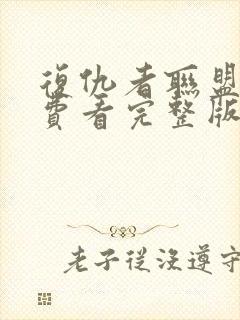 復仇者聯盟
費看完整版
老子從沒遵守